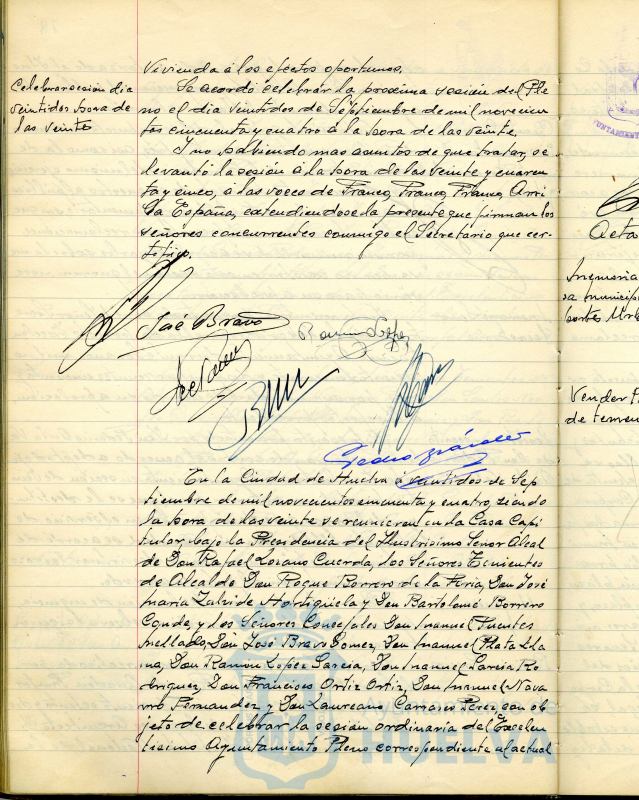 Vivienda á los efectos oportunos.
Celebrar sesión día
veintidos hora de
las veinte
Se acordó celebrar la proxima sesión del Ple
no el dia veintidos de Septiembre de mil novecien
tos cincuenta y cuatro á la hora de las veinte.
Y no habiendo mas asuntos de que tratar, se
levantó la sesión á la hora de las veinte y cuaren
ta y cinco, á las voces de Franco, Franco, Franco, Arri
ba España, extendiendose la presente que firman los
señores concurrentes conmigo el Secretario que cer-
tifico.
José Bravo
Ramon Lopez
En la Ciudad de Huelva á veintidos de Sep
tiembre de mil novecientos cincuenta y cuatro, siendo
la hora de las veinte se reunieron en la Casa Capi
tular, bajo la Presidencia del Ilustrisimo Señor Alcal
de Don Rafael Lozano Cuerda, los Señores Tenientes
de Alcalde Don Roque Borrero de la Feria, Don José
Maria Zalvide Hortigüela y Don Bartolomé Borrero
Conde, y los Señores Concejales Don Manuel Fuentes
Mellado, Don José Bravo Gomez, Don Manuel Plata Lla
na, Don Ramon Lopez Garcia, Don Manuel Garcia Ro
driguez, Don Francisco Ortiz Ortiz, Don Manuel Nava
rro Fernandez y Don Laureano Carrasco Perez, con ob
jeto de celebrar la sesión ordinaria del Excelen
tisimo Ayuntamiento Pleno correspondiente al actual
HUELVA
Acta
Vender
de terren